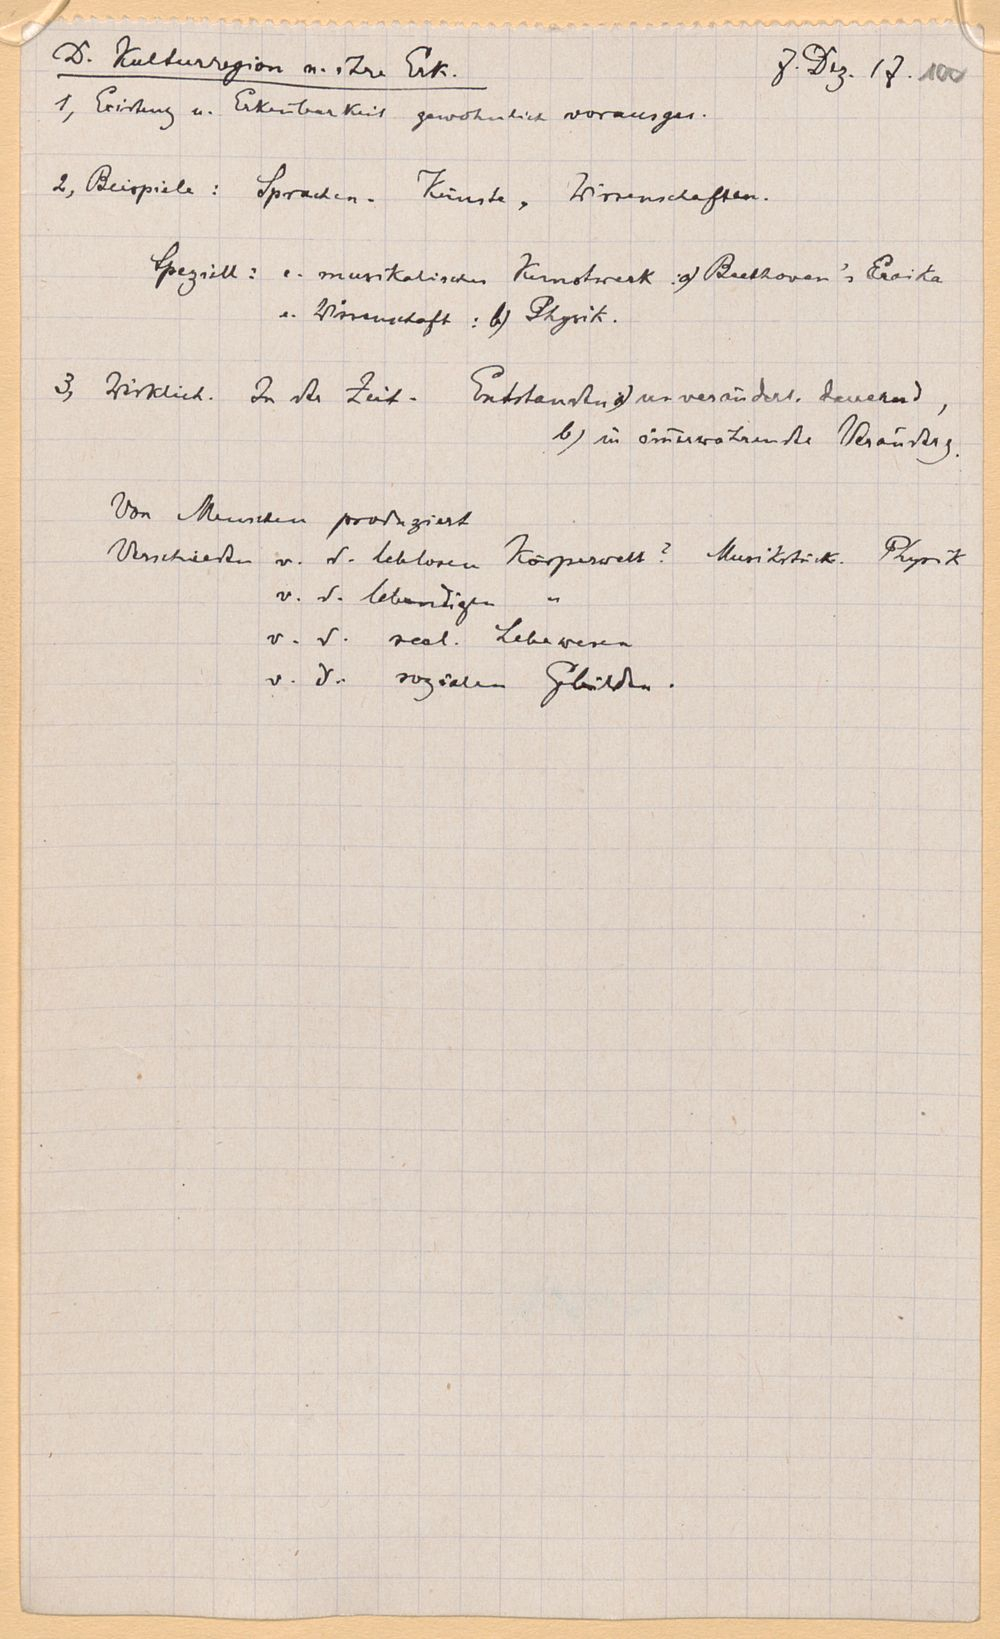 D. Kulturregion u. ihre Erk. 7. Dez. 17. 100
1, Existenz u. Erkennbarkeit gewöhnlich vorausges.
2, Beispiele : Sprachen. Künste, Wissenschaften.
Speziell : e. musikalisches Kunstwerk : a) Beethoven's Eroika
e. Wissenschaft : b) Physik.
3, Wirklich. In der Zeit. Entstanden a) unverändert. dauernd,
b) in immerwährende Veränderg.
Von Menschen produziert
Verschieden v. d. leblosen Körperwelt? Musikstück. Physik
v. d. lebendigen "
v. d. seel. Lebewesen
v. d. sozialen Gebilden.